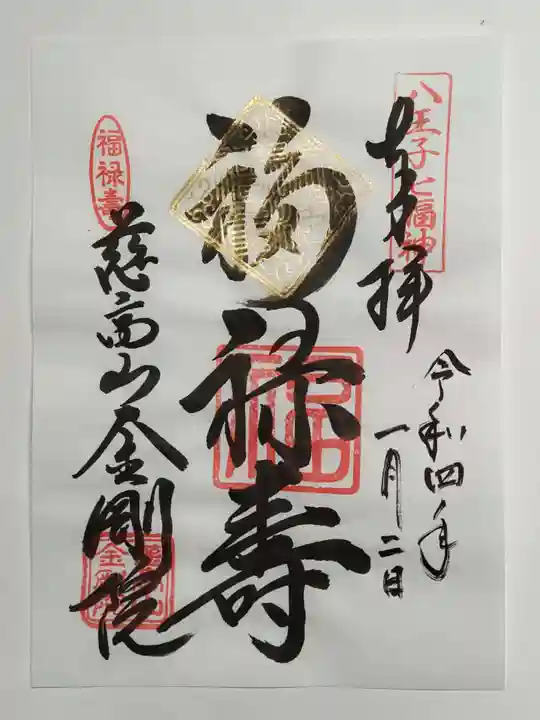 八王子七福神
奉拝
令和四年
一月二日
福禄壽
福禄壽
慈高山金剛院